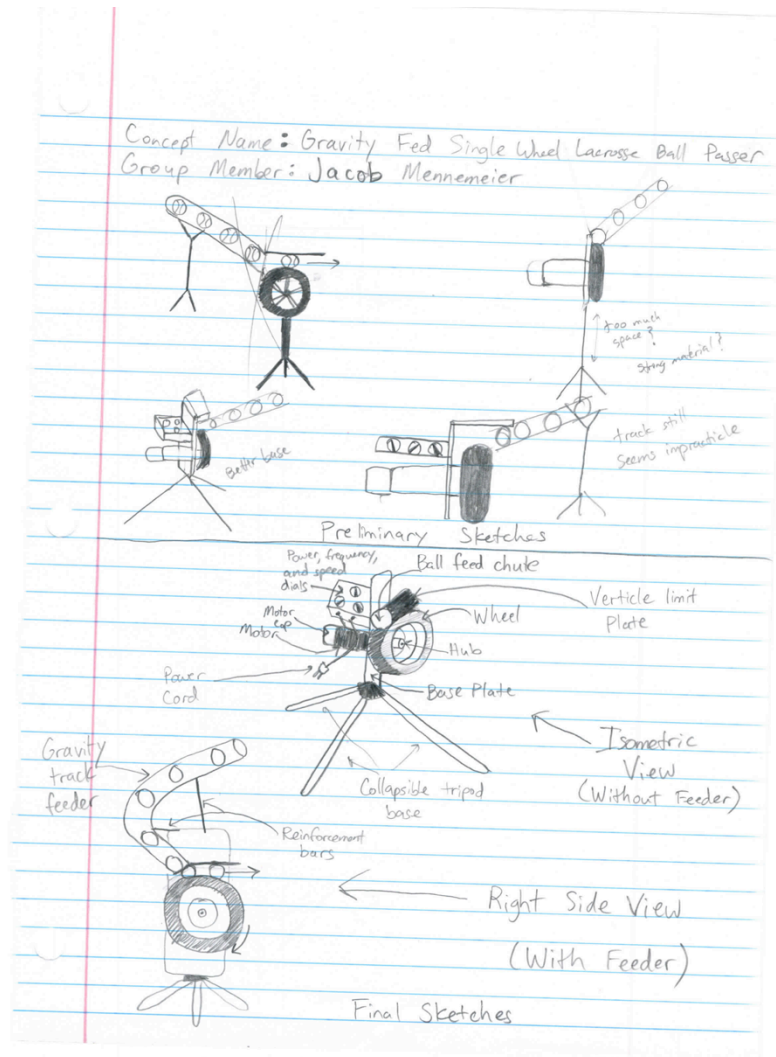 Concept Name: Gravity Fed Single Wheel Lacrosse Ball Passer
Group Member: Jacob Mennemeier
too much
space?
strong material?
Better base
track still
seems impracticle
Preliminary Sketches
Power, frequency,
and speed
dials
Ball feed chute
Verticle limit
plate
Motor
cap
Wheel
Motor
Hub
Power
Cord
Base Plate
Isometric
View
(Without Feeder)
Collapsible tripod
base
Gravity
track
feeder
Reinforcement
bars
Right Side View
(With Feeder)
Final Sketches